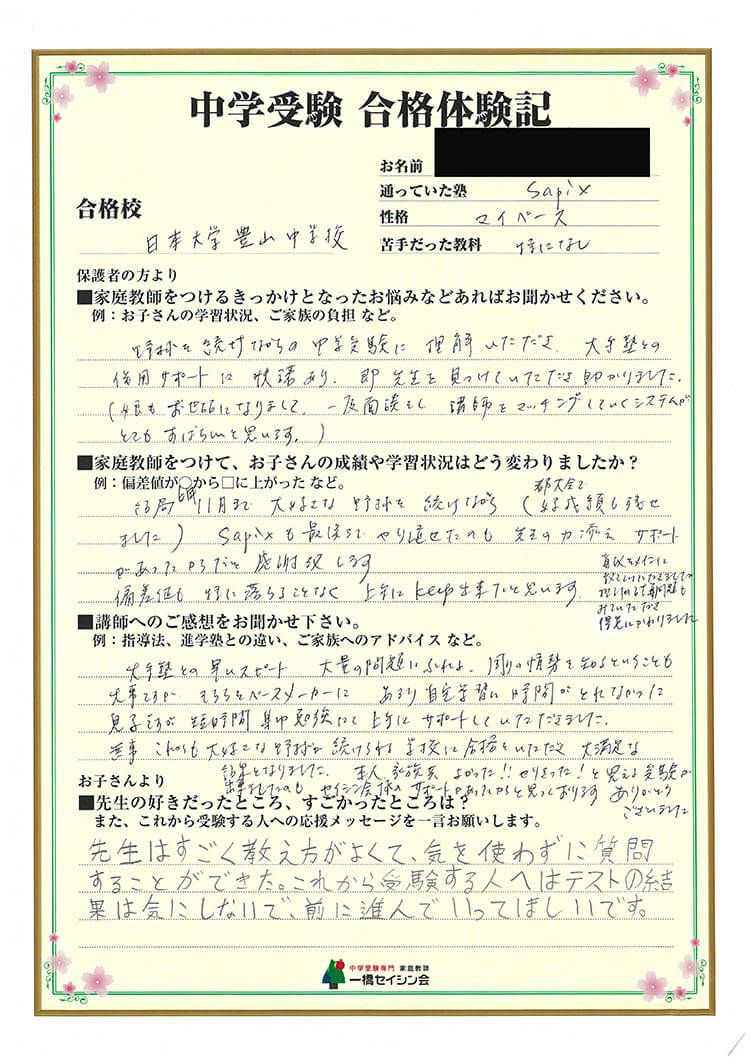 中学受験 合格体験記
お名前
通っていた塾 Sapix
合格校
性格 マイペース
日本大学豊山中学校
苦手だった教科 特になし
保護者の方より
■家庭教師をつけるきっかけとなったお悩みなどあればお聞かせください。
例：お子さんの学習状況、ご家族の負担 など。
野球を続けながらの中学受験に理解いただき、大手塾との
併用サポートに 実績あり、即先生を見つけていただき助かりました。
(娘もお世話になりまして、一度面談をし 講師をマッチングしていくシステムが
とてもすばらしいと思います。)
■家庭教師をつけて、お子さんの成績や学習状況はどう変わりましたか？
例：偏差値が○から□に上がった など。
結局 11月まで 大好きな野球を続けながら (都大会で 好成績も残せ
ました) Sapixも最後までやり通せたのも 先生の力添え サポート
があったからだと感謝致します
偏差値も 特に落ちることなく 上手にkeep出来たと思います。
真政をメインに
教えていただきましたが
みていただき
得意にかわりました
■講師へのご感想をお聞かせ下さい。
例：指導法、進学塾との違い、ご家族へのアドバイス など。
大手塾との早いスピード 大量の問題にふれ、周りの情勢を知るということも
大事ですが そちらをペースメーカーに あまり自宅学習に時間がとれなかった
息子ですが 短時間 集中勉強にて上手にサポートしていただきました。
無事 これからも大好きな野球が続けられる学校に合格をいただき 大満足な
結果となりました。本人、家族共 よかった!! やりきった! と思える受験が
出来ましたのも セイシン会様のサポートがあったからと思っております ありがとう
ございました
お子さんより
■先生の好きだったところ、すごかったところは？
また、これから受験する人への応援メッセージを一言お願いします。
先生はすごく教え方がよくて、気を使わずに質問
することができた。これから受験する人へはテストの結
果は気にしないで、前に進んでいってほしいです。
中学受験専門 家庭教師
一橋セイシン会